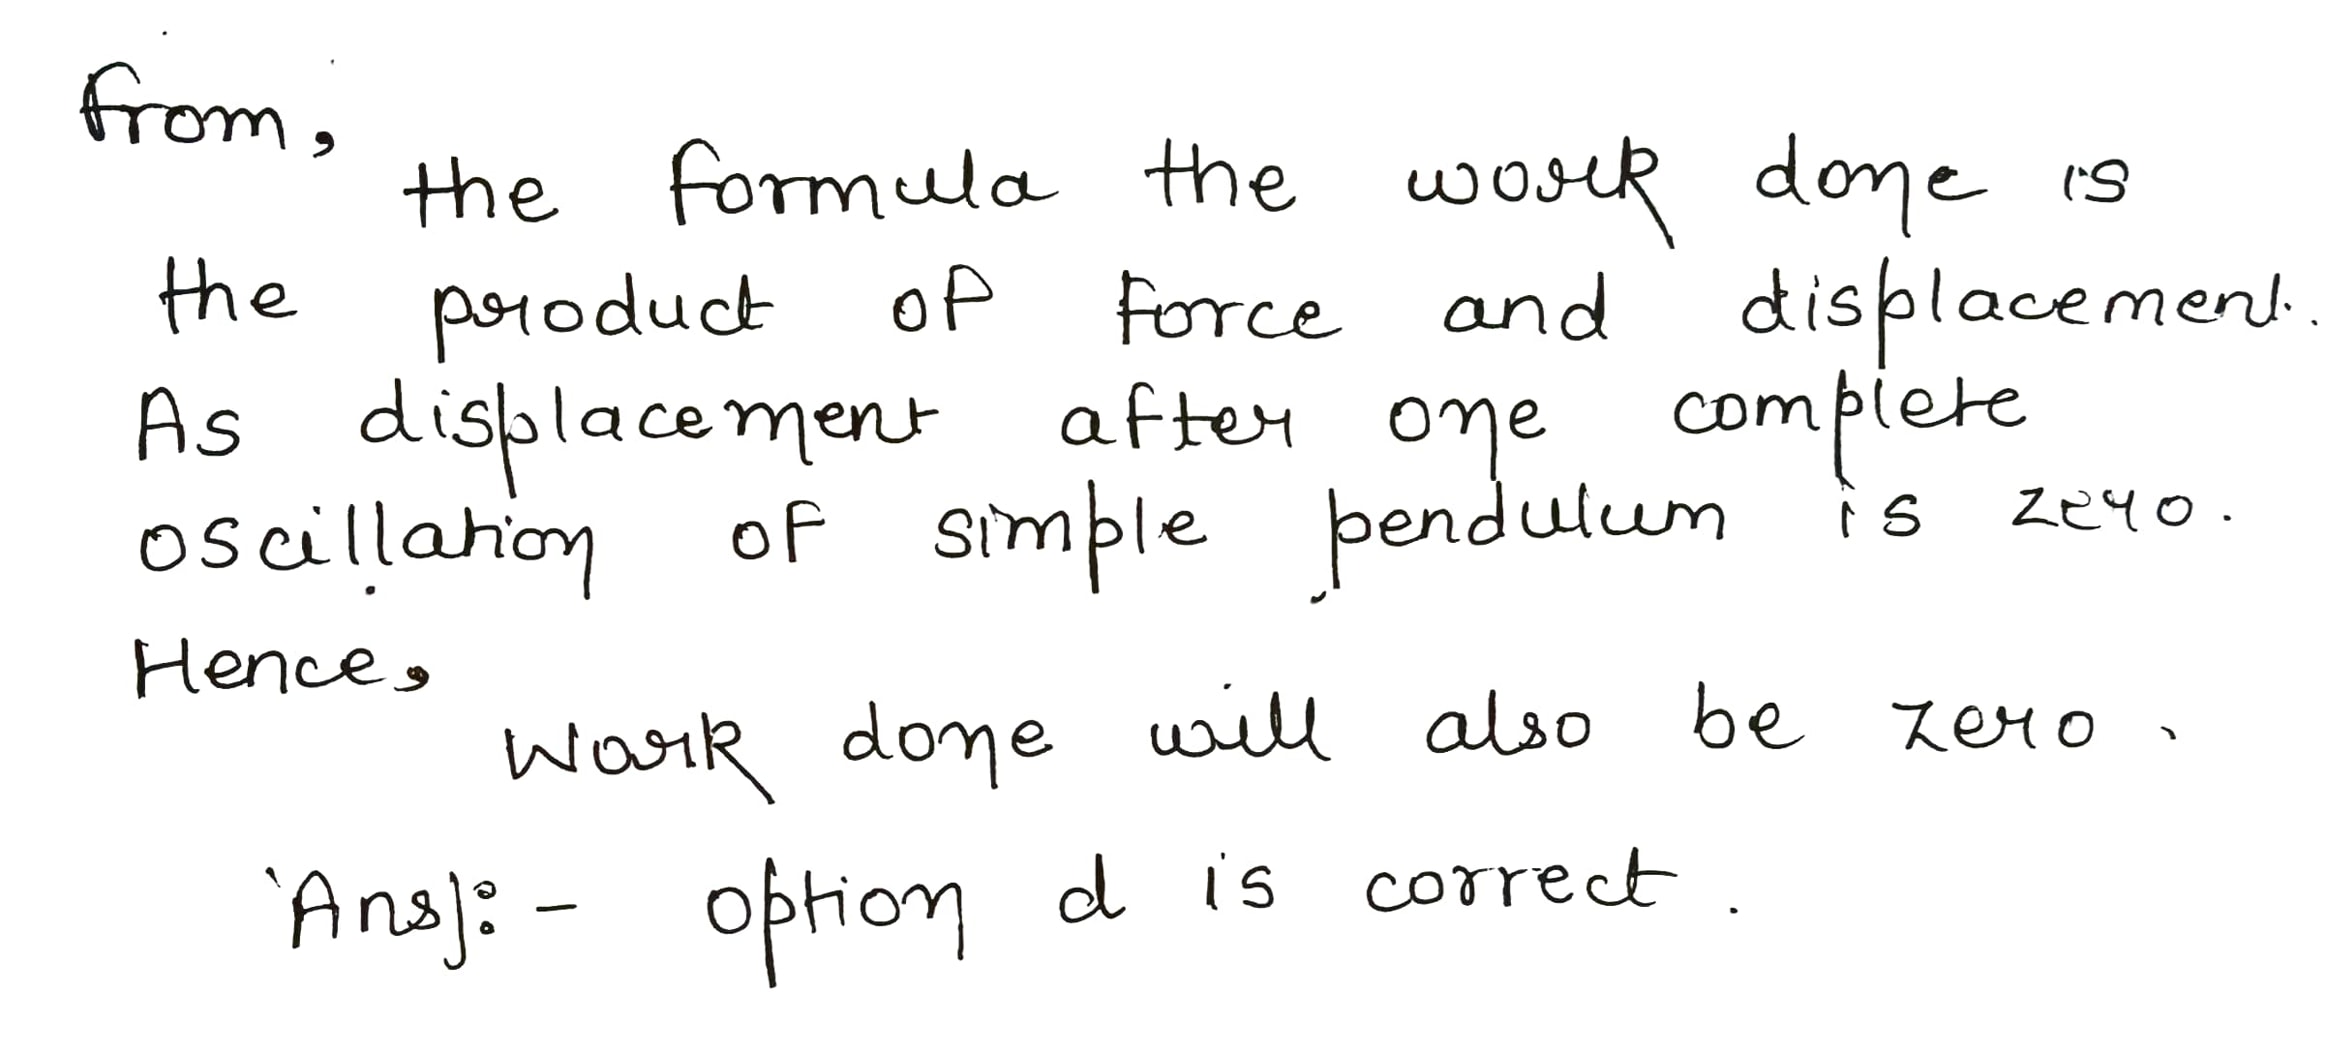 from,
the formula the work done is
the product of force and displacement.
As displacement after one complete
oscillation of simple pendulum is zero.
Hence,
Work done will also be zero.
Ans]:- option d is correct.